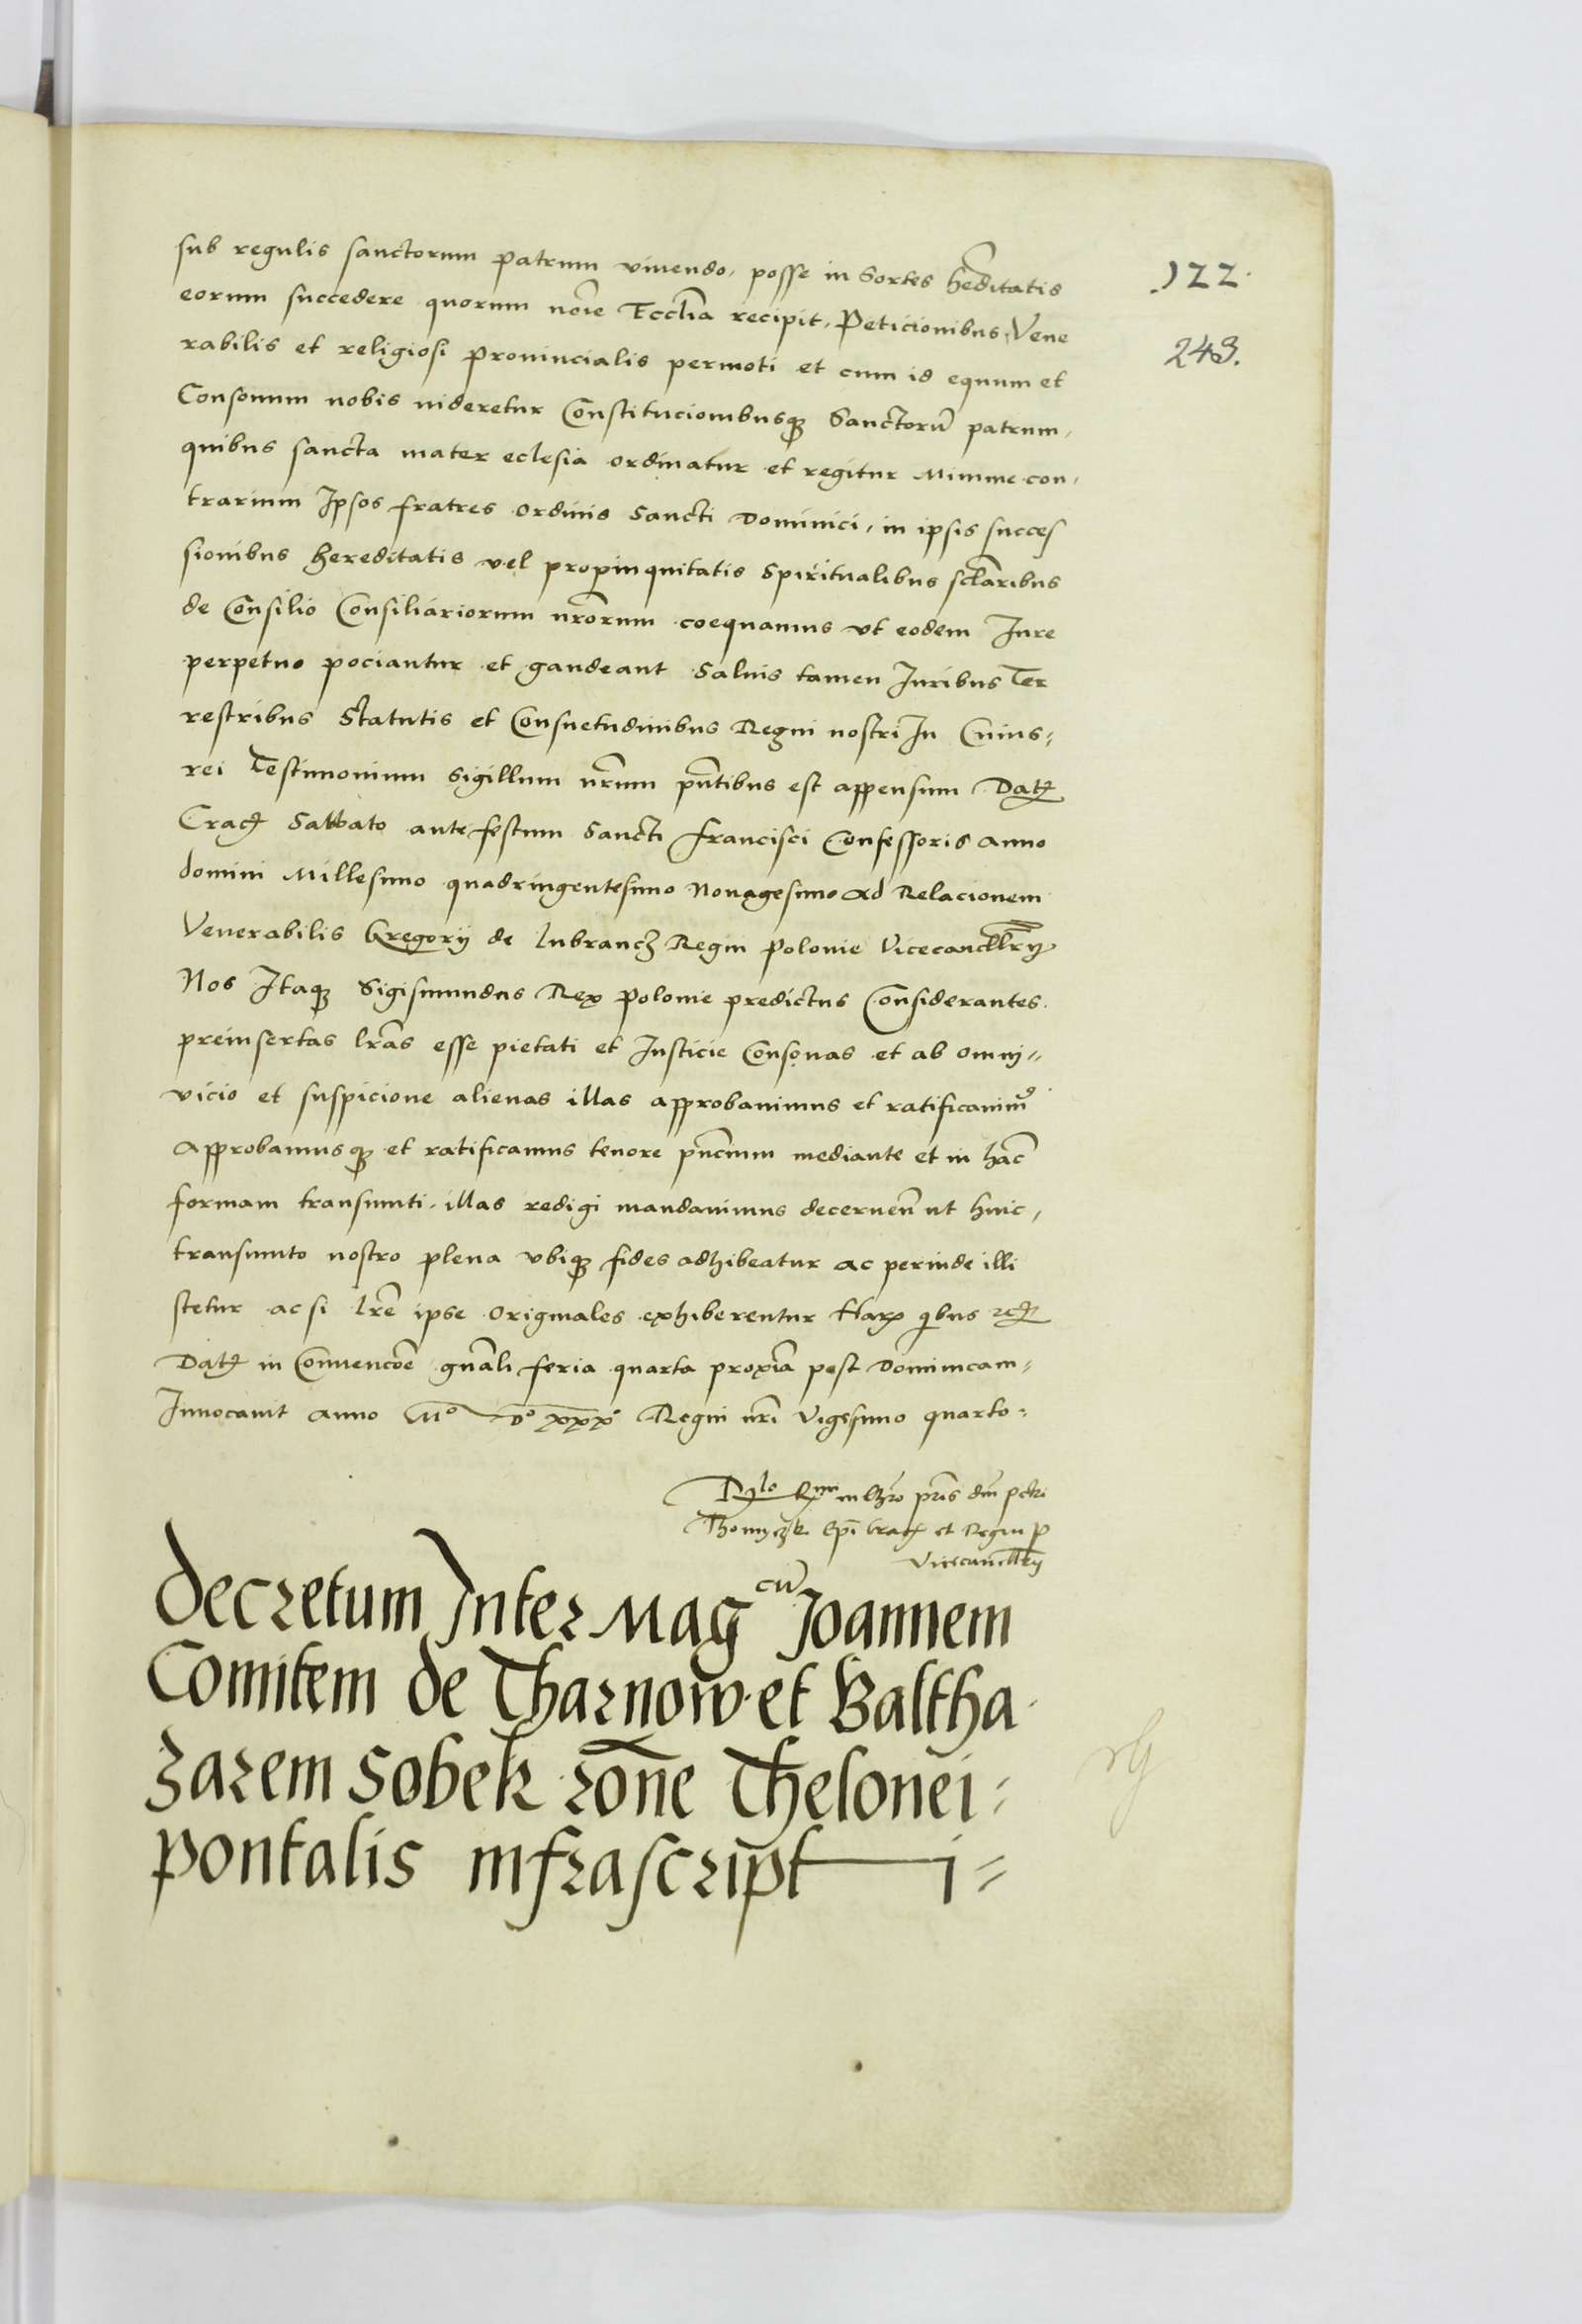 sub regulis sanctorum patrum viuendo, posse in Sortes heditatis
122.
eorum succedere quorum noie Ecclia recipit, Peticionibus Vene
243.
rabilis et religiosi prouincialis permoti et cum id equum et
Consonum nobis uideretur Constitucionibusq Sanctoru patrum,
quibus sancta mater eclesia ordinatur et regitur Minime con,
trarium Ipsos fratres ordinis Sancti Dominici, in ipsis succes
sionibus hereditatis vel propinquitatis Spiritualibus sclaribus
de Consilio Consiliariorum nrorum coequamus vt eodem Iure
perpetuo pociantur et gaudeant Saluis tamen Iuribus Ter
restribus Statutis et Consuetudinibus Regni nostri In Cuius
rei Testimonium Sigillum nrum pntibus est appensum Dat
Crac Sabbato ante festum Sancti Francisci Confessoris anno
domini Millesimo quadringentesimo Nonagesimo Ad Relacionem
Venerabilis Gregorij de lubrancz Regni Polonie Vicecancllrij
Nos Itaq Sigismundus Rex Polonie predictus Considerantes
preinsertas lras esse pietati et Iusticie Consonas et ab omnj
vicio et suspicione alienas illas approbauimus et ratificauim9
approbamusq et ratificamus tenore pncium mediante et in hac
formam transumti, illas redigi mandauimus decernen ut huic,
transumto nostro plena vbiq fides adhibeatur ac perinde illi
stetur ac si lre ipse originales exhiberentur Harx qibus
Dat in Conuencoe gnali feria quarta proxia post Dominicam
Inuocauit anno Mo Do xxx Regni nri Vigesimo quarto
Rlo Rmi in Chro pris dni petri
Thomyczk Epi Crac et Regni P
Vicecancllrij
Decretum Inter Magcu Joannem
Comitem de Tharnow et Baltha
zarem Sobek rone Thelonei
pontalis infrascripti